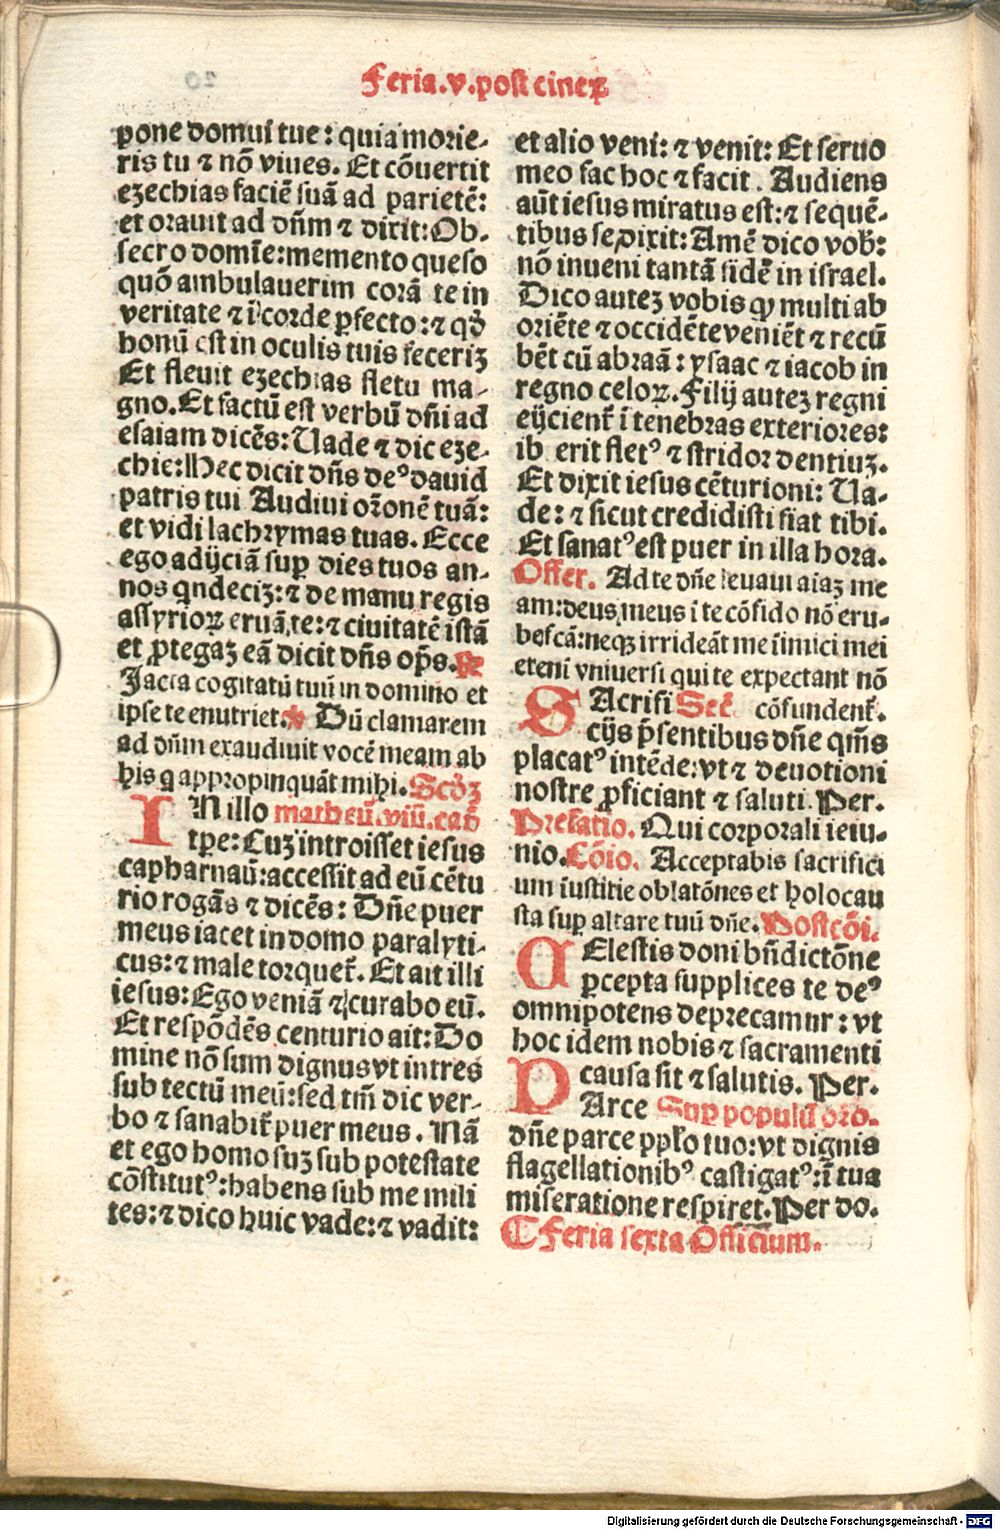 Feria.v.post cineꝝ
pone domui tue: quia morie-
ris tu ⁊ nō viues. Et cōuertit
ezechias faciē suā ad parietē:
et orauit ad dn̄m ⁊ dixit: Ob-
secro domīe: memento queso
quō ambulauerim corā te in
veritate ⁊ ī corde ꝑfecto: ⁊ qď
bonū est in oculis tuis feceriꝫ
Et fleuit ezechias fletu ma-
gno. Et factū est verbū dn̄i ad
esaiam dicēs: Uade ⁊ dic eze-
chie: Hec dicit dn̄s deꝰ dauid
patris tui Audiui orōnē tuā:
et vidi lachrymas tuas. Ecce
ego adijciā suꝑ dies tuos an-
nos qndeciꝫ: ⁊ de manu regis
assyrioꝝ eruā te: ⁊ ciuitatē istā
et ꝓtegaꝫ eā dicit dn̄s op̄s. ℟
Jacta cogitatū tuū in domino et
ipse te enutriet. ℣ Dū clamarem
ad dn̄m exaudiuit vocē meam ab
his q appropinquāt mihi. Scďꝫ
IN illo matheū. viij. cap̄
tꝑe: Cuꝫ introisset iesus
capharnaū: accessit ad eū cētu
rio rogās ⁊ dicēs: Dn̄e puer
meus iacet in domo paralyti-
cus: ⁊ male torquet̄. Et ait illi
iesus: Ego veniā ⁊ curabo eū.
Et respōdēs centurio ait: Do
mine nō sum dignus vt intres
sub tectū meū: sed tm̄ dic ver-
bo ⁊ sanabit̄ puer meus. Nā
et ego homo suꝫ sub potestate
cōstitutꝰ: habens sub me mili
tes: ⁊ dico huic vade: ⁊ vadit:
et alio veni: ⁊ venit: Et seruo
meo fac hoc ⁊ facit. Audiens
aūt iesus miratus est: ⁊ sequē-
tibus se dixit: Amē dico vob̄:
nō inueni tantā fidē in israel.
Dico auteꝫ vobis ꝙ multi ab
oriēte ⁊ occidēte veniēt ⁊ recū
bēt cū abraā: ysaac ⁊ iacob in
regno celoꝝ. Filij auteꝫ regni
eijcient̄ ī tenebras exteriores:
ib erit fletꝰ ⁊ stridor dentiuꝫ.
Et dixit iesus cēturioni: Ua-
de: ⁊ sicut credidisti fiat tibi.
Et sanatꝰ est puer in illa hora.
Offer. Ad te dn̄e leuaui aiaꝫ me
am: deus meus ī te cōfido nō eru-
bescā: neqꝫ irrideāt me īimici mei
etenī vniuersi qui te expectant nō
SAcrifi Sec̄. cōfundent̄.
cijs p̄sentibus dn̄e qm̄s
placatꝰ intēde: vt ⁊ deuotioni
nostre ꝓficiant ⁊ saluti. Per.
Prefatio. Qui corporali ieiu-
nio. Cōio. Acceptabis sacrifici
um īustitie oblatōnes et holocau
sta suꝑ altare tuū dn̄e. Postcōi.
CElestis doni bn̄dictōne
ꝑcepta supplices te deꝰ
omnipotens deprecamur: vt
hoc idem nobis ⁊ sacramenti
causa sit ⁊ salutis. Per.
PArce Suꝑ populū oro.
dn̄e parce pplo tuo: vt dignis
flagellationibꝰ castigatꝰ: ī tua
miseratione respiret. Per do.
⸿ Feria sexta Officium.
Digitalisierung gefördert durch die Deutsche Forschungsgemeinschaft - DFG